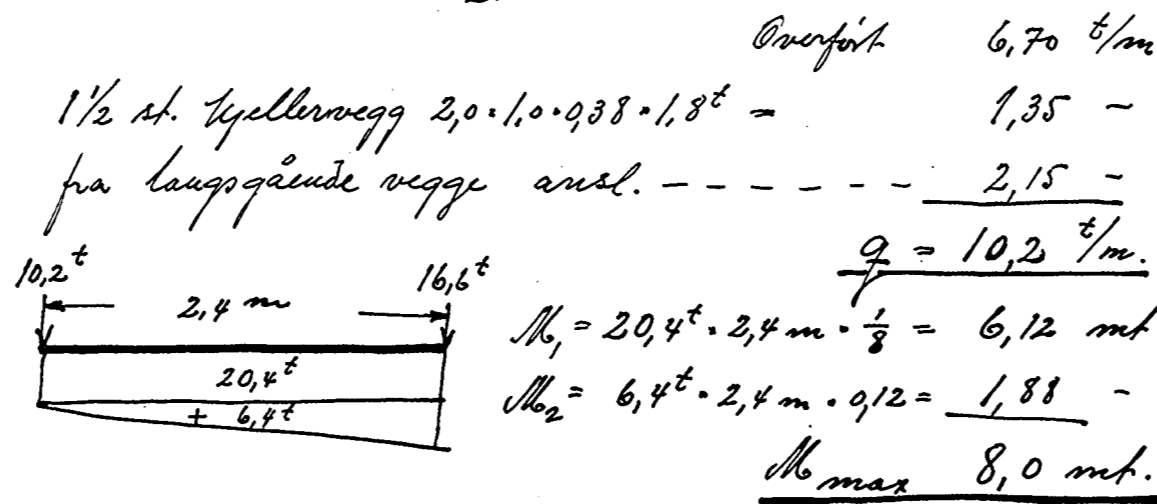 Overført 6,70 t/m
1 1/2 st. kjellervegg 2,0 · 1,0 · 0,38 · 1,8 t = 1,35 -
fra langsgående vegge ansl. - - - - - - 2,15 -
q = 10,2 t/m.
10,2 t 16,6 t
2,4 m
20,4 t
+ 6,4 t
M₁ = 20,4 t · 2,4 m · 1/8 = 6,12 mt
M₂ = 6,4 t · 2,4 m · 0,12 = 1,88 -
M max 8,0 mt.